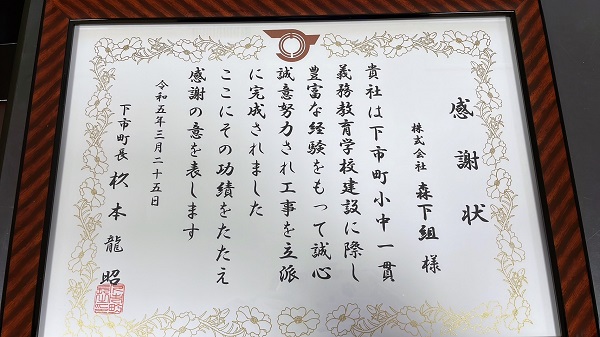 感謝状
株式会社 森下組 様
貴社は下市町小中一貫
義務教育学校建設に際し
豊富な経験をもって誠心
誠意努力され工事を立派
に完成されました
ここにその功績をたたえ
感謝の意を表します
令和五年三月二十五日
下市町長 杦本龍昭